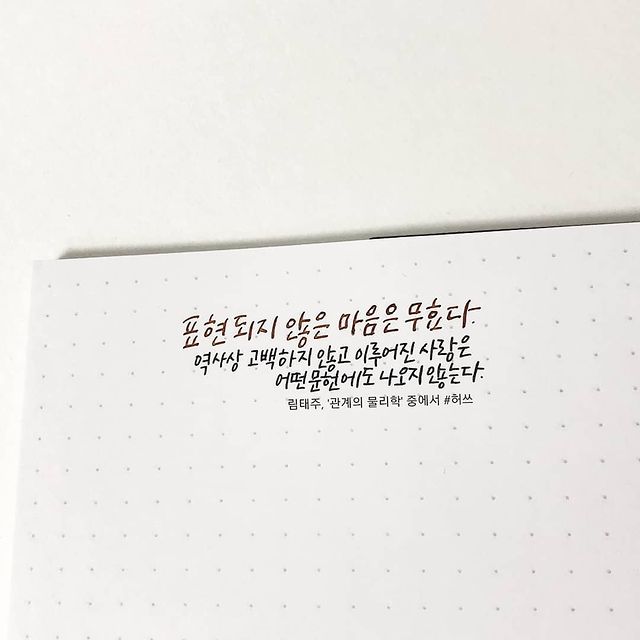 표현되지 않은 마음은 무효다.
역사상 고백하지 않고 이루어진 사랑은
어떤 문헌에도 나오지 않는다.
림태주, '관계의 물리학' 중에서 #허쓰